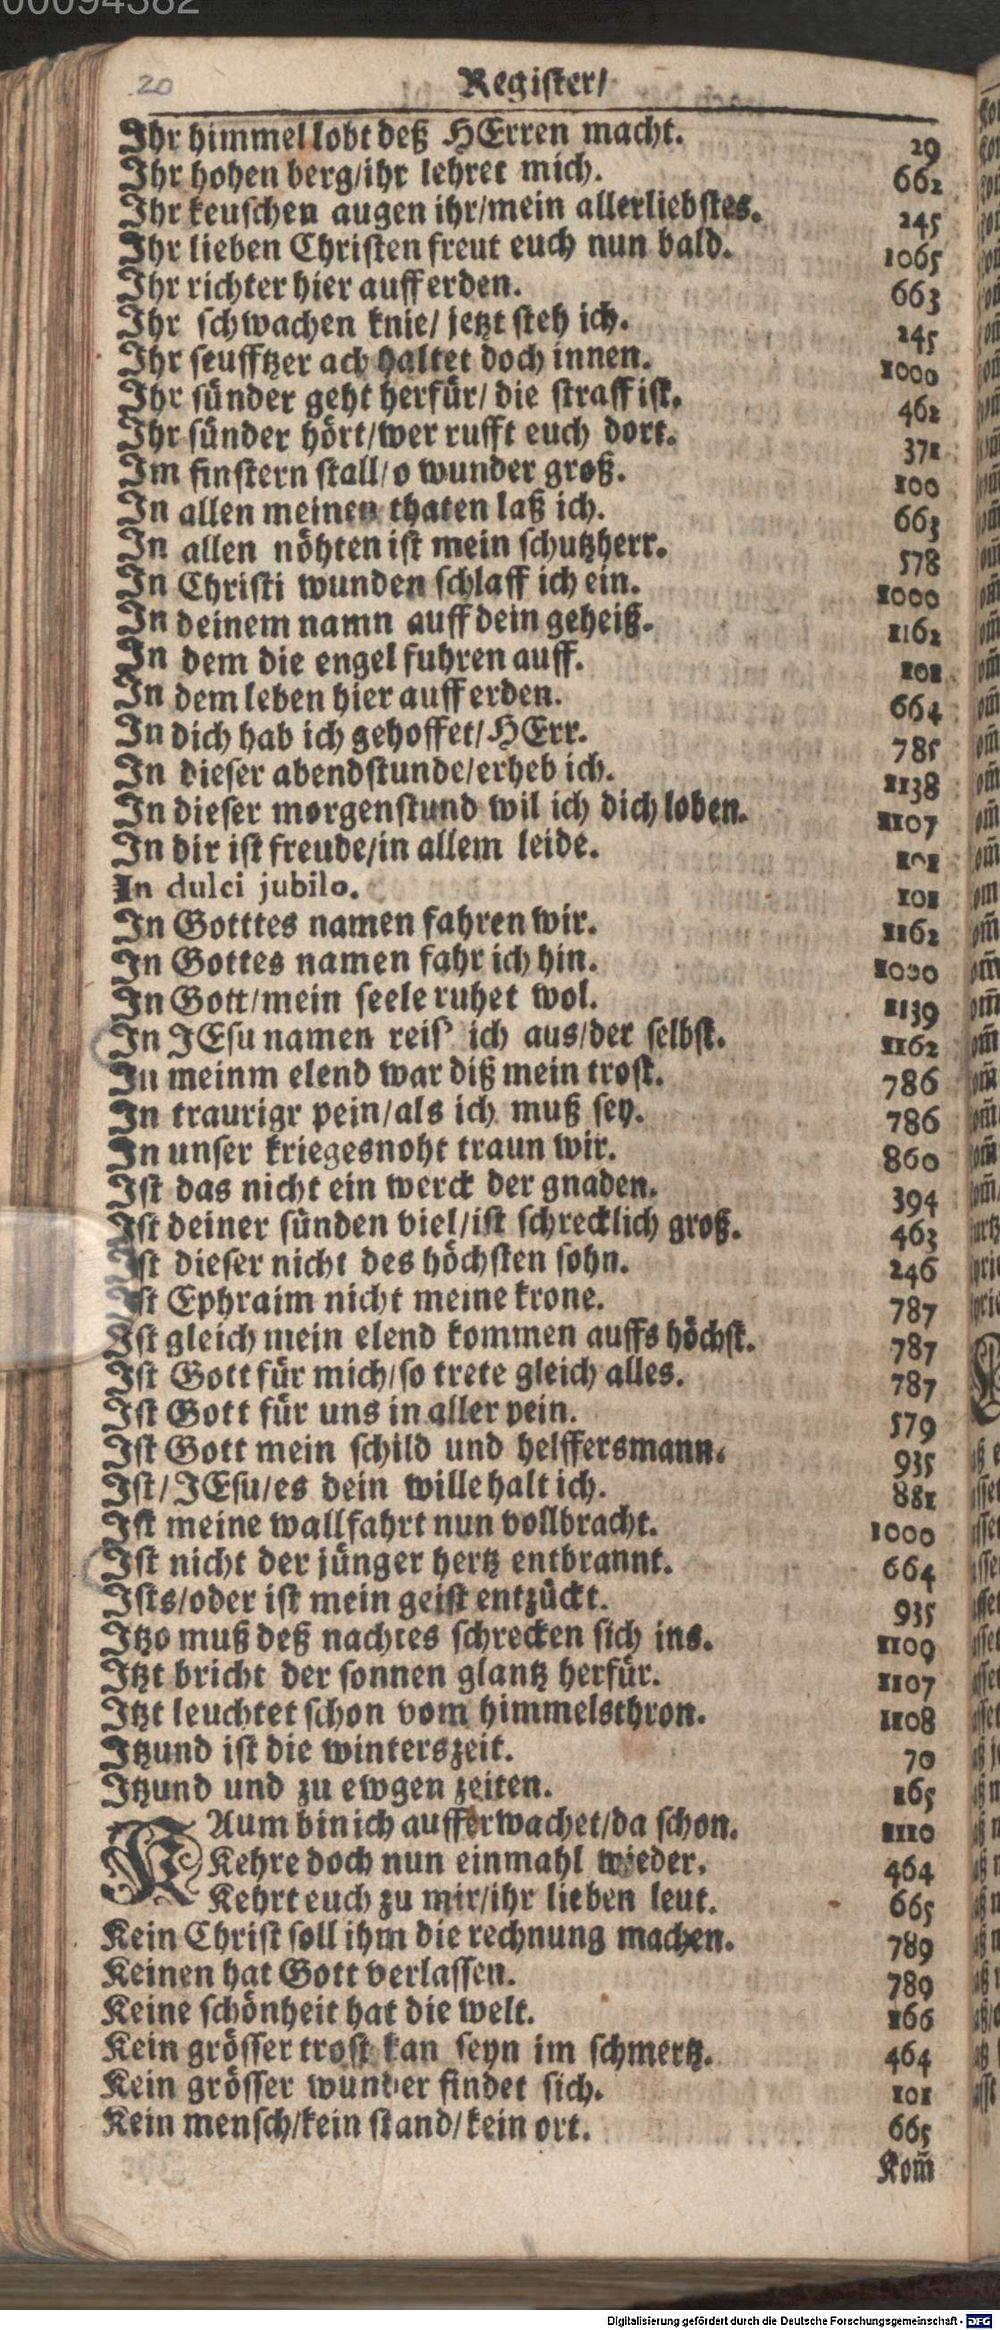 00094382
20
Register/
Ihr himmel lobt deß HErren macht. 29
Ihr hohen berg/ihr lehret mich. 662
Ihr keuschen augen ihr/mein allerliebstes. 245
Ihr lieben Christen freut euch nun bald. 1065
Ihr richter hier auff erden. 663
Ihr schwachen knie/ jetzt steh ich. 245
Ihr seufftzer ach haltet doch innen. 1000
Ihr sünder geht herfür/ die straff ist. 462
Ihr sünder hört/wer rufft euch dort. 371
Im finstern stall/o wunder groß. 100
In allen meinen thaten laß ich. 663
In allen nöhten ist mein schutzherr. 578
In Christi wunden schlaff ich ein. 1000
In deinem namn auff dein geheiß. 1162
In dem die engel fuhren auff. 101
In dem leben hier auff erden. 664
In dich hab ich gehoffet/HErr. 785
In dieser abendstunde/erheb ich. 1138
In dieser morgenstund wil ich dich loben. 1107
In dir ist freude/in allem leide. 101
In dulci jubilo. 101
In Gotttes namen fahren wir. 1162
In Gottes namen fahr ich hin. 1000
In Gott/mein seele ruhet wol. 1139
In JEsu namen reis' ich aus/der selbst. 1162
In meinm elend war diß mein trost. 786
In traurigr pein/als ich muß sey. 786
In unser kriegesnoht traun wir. 860
Ist das nicht ein werck der gnaden. 394
Ist deiner sünden viel/ist schrecklich groß. 463
Ist dieser nicht des höchsten sohn. 246
Ist Ephraim nicht meine krone. 787
Ist gleich mein elend kommen auffs höchst. 787
Ist Gott für mich/so trete gleich alles. 787
Ist Gott für uns in aller pein. 579
Ist Gott mein schild und helffersmann. 935
Ist/JEsu/es dein wille halt ich. 881
Ist meine wallfahrt nun vollbracht. 1000
Ist nicht der jünger hertz entbrannt. 664
Ists/oder ist mein geist entzückt. 935
Itzo muß deß nachtes schrecken sich ins. 1109
Itzt bricht der sonnen glantz herfür. 1107
Itzt leuchtet schon vom himmelsthron. 1108
Itzund ist die winterszeit. 70
Itzund und zu ewgen zeiten. 165
KAum bin ich aufferwachet/da schon. 1110
Kehre doch nun einmahl wieder. 464
Kehrt euch zu mir/ihr lieben leut. 665
Kein Christ soll ihm die rechnung machen. 789
Keinen hat Gott verlassen. 789
Keine schönheit hat die welt. 166
Kein grösser trost kan seyn im schmertz. 464
Kein grösser wunder findet sich. 101
Kein mensch/kein stand/kein ort. 665
Kom̃
Digitalisierung gefördert durch die Deutsche Forschungsgemeinschaft - DFG